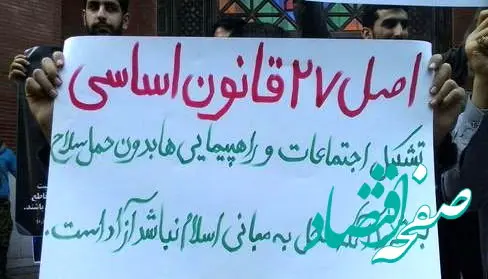 اصل ۲۷ قانون اساسی
تشکیل اجتماعات و راهپیمایی ها بدون حمل سلاح
به مبانی اسلام نباشد آزاد است.
صفحه اقتصاد